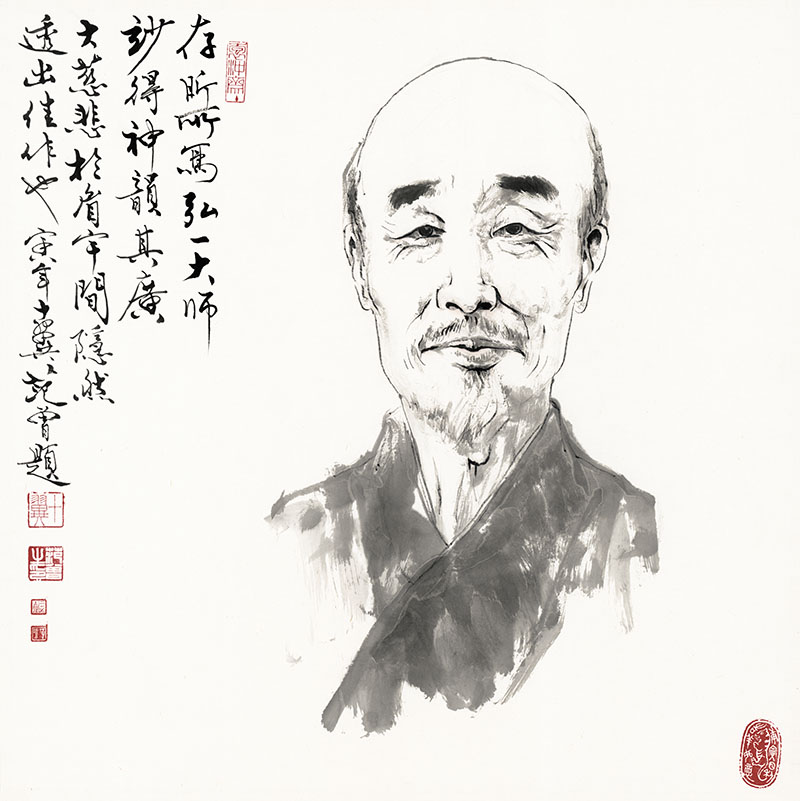 存昕所寫弘一大师
妙得神韻其廣
大慈悲於眉宇間隱然
透出佳作也 寅年十翼范曾題
十翼